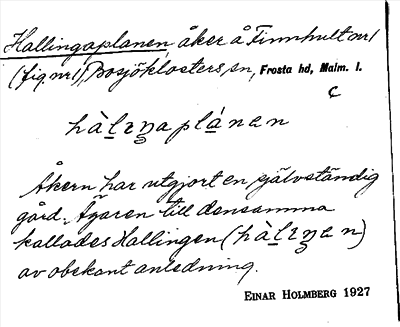 Hallingaplanen, åker å Finnhult nr 1
(fig. nr 1), Bosjöklosters sn, Frosta hd, Malm. l.
c
hàlıŋaplánen
Åkern har utgjort en självständig
gård. Ägaren till densamma
kallades Hallingen (hàlıŋen)
av obekant anledning.
EINAR HOLMBERG 1927